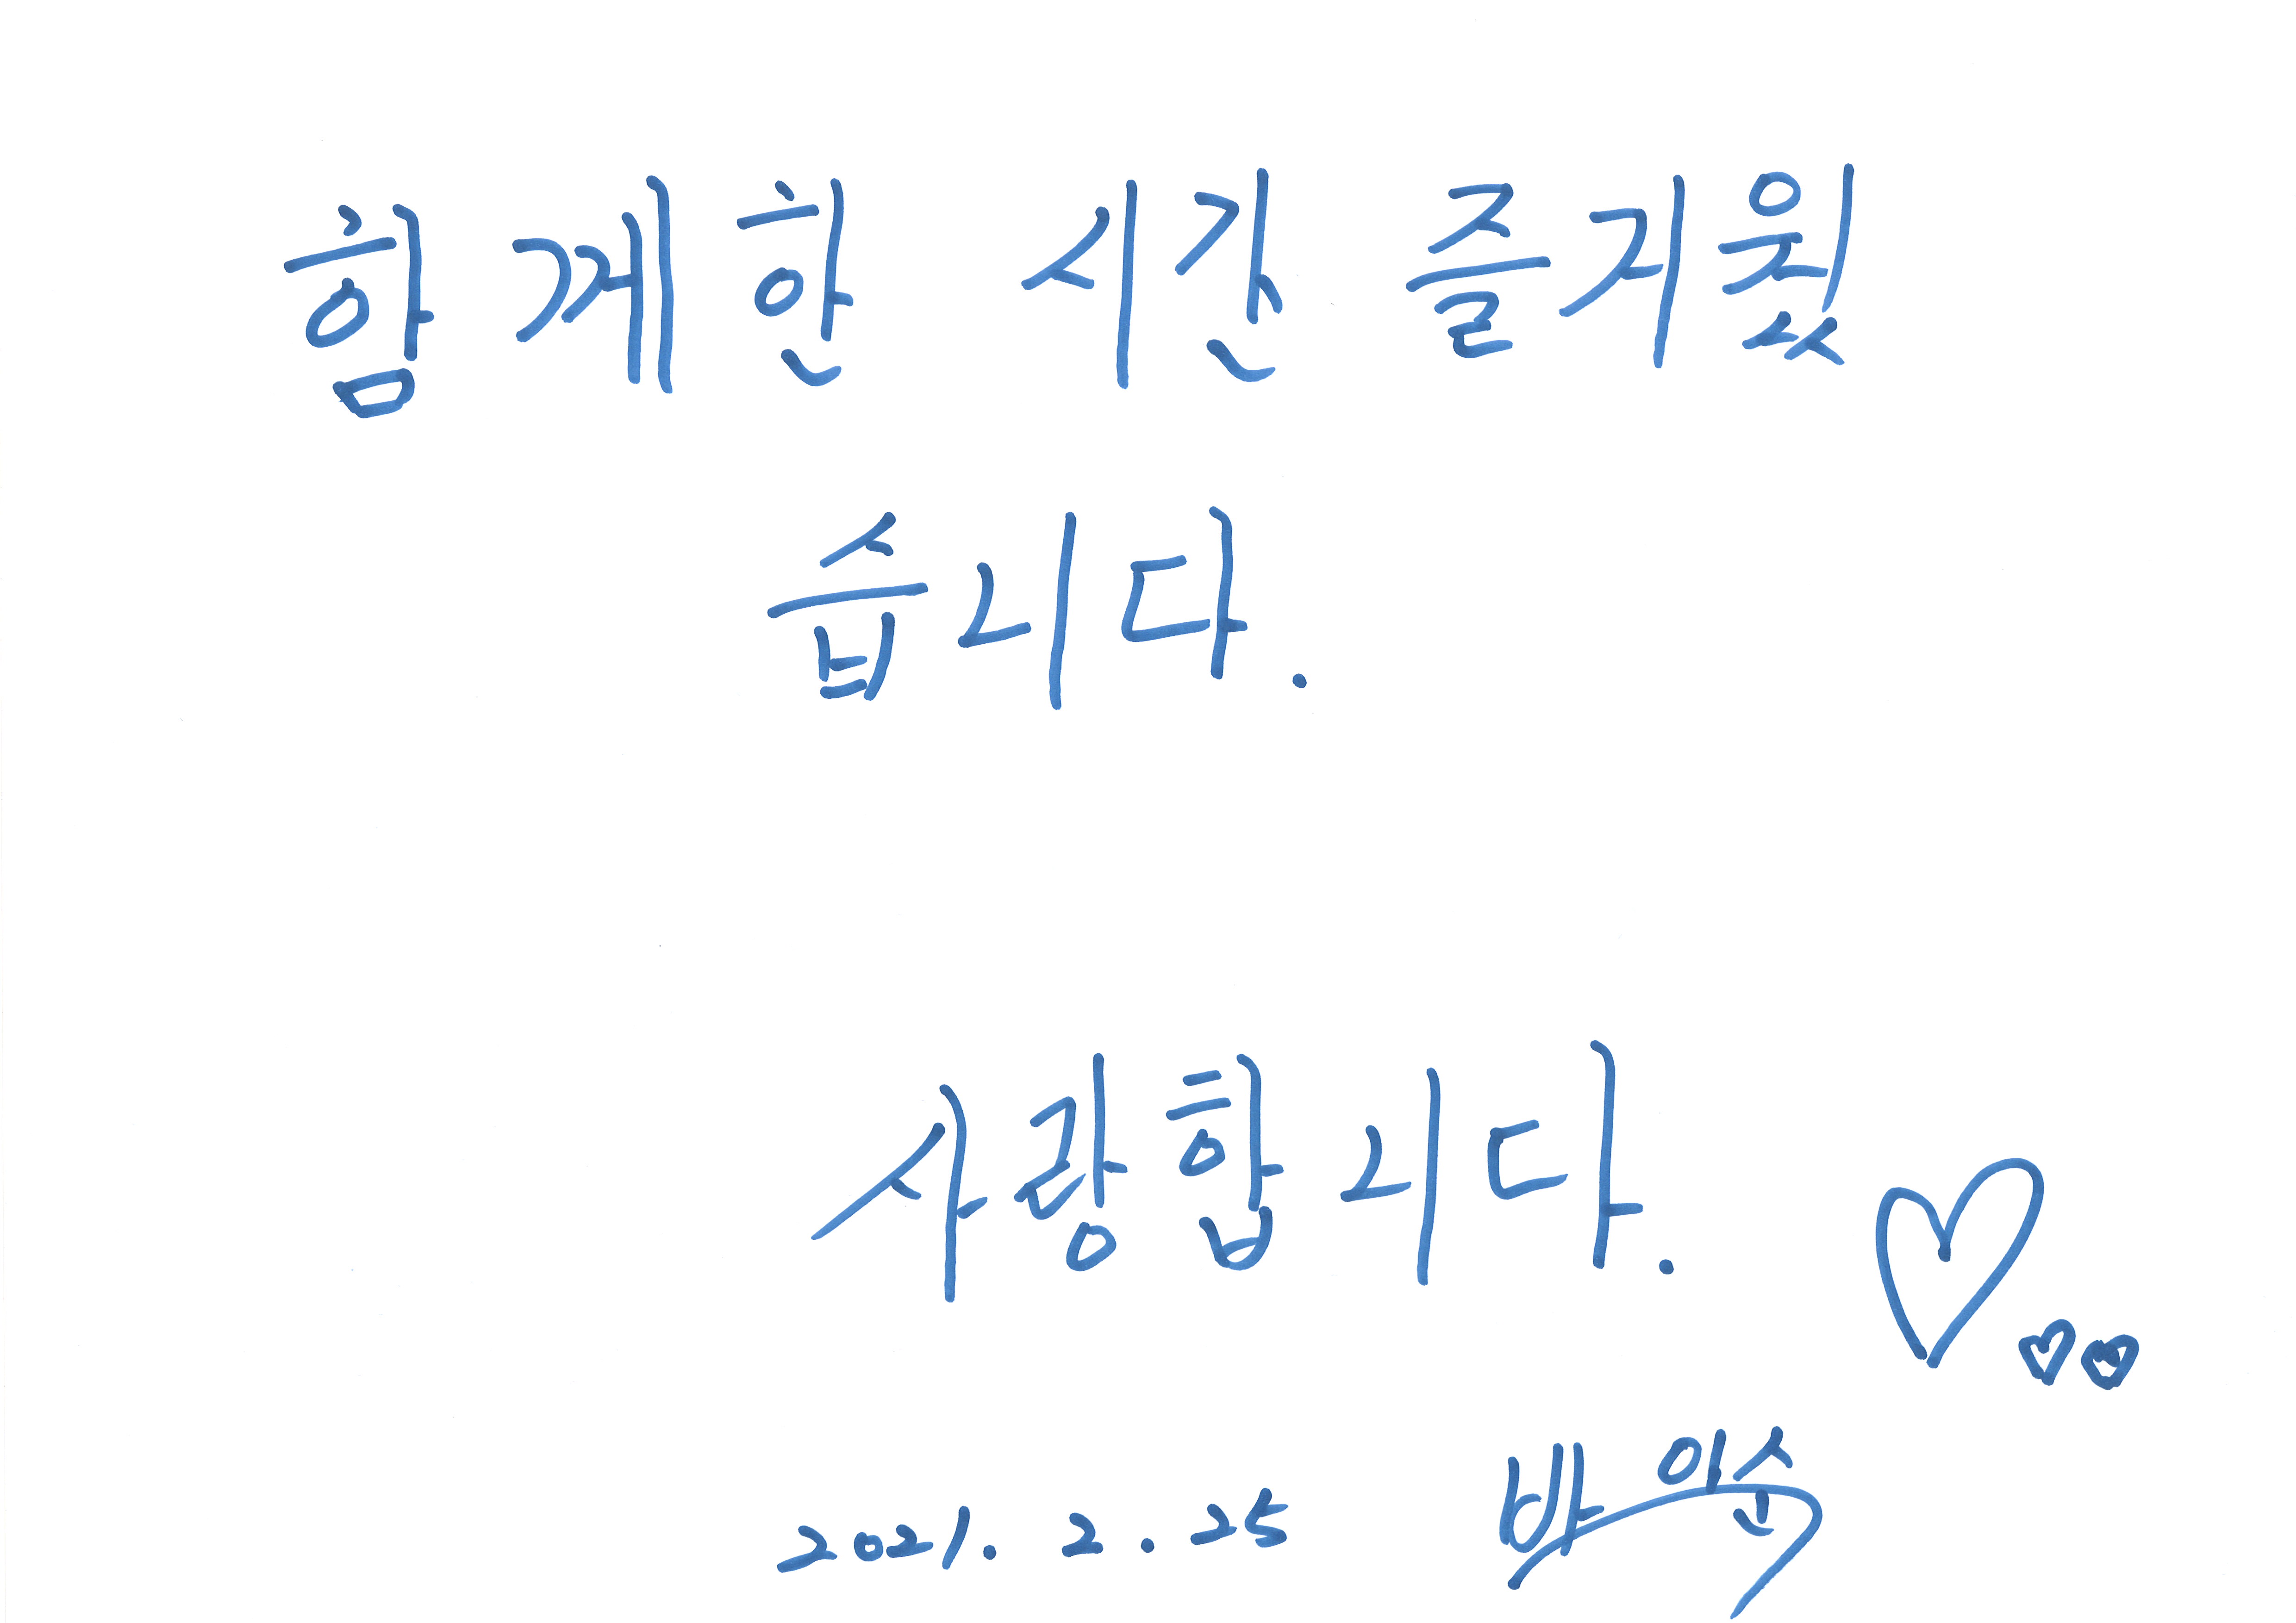 함께한 시간 즐거웠
습니다.
사랑합니다.
2021. 2. 25